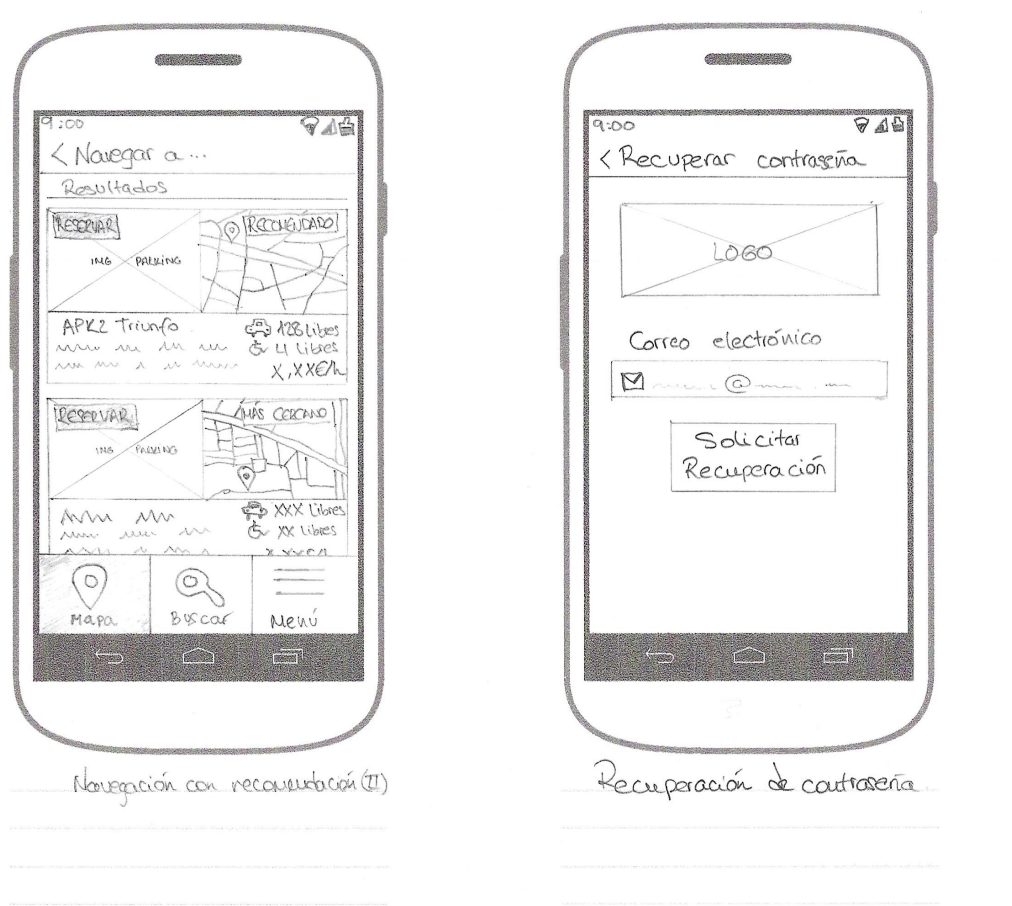 9:00
< Navegar a ...
Resultados
RESERVAR
RECOMENDADO
IMG PARKING
APK2 Triunfo
128 Libres
4 Libres
X,XX€/h
RESERVAR
MÁS CERCANO
IMG PARKING
XXX Libres
XX Libres
X,XX€/h
Mapa
Buscar
Menú
Navegación con recomendación (II)
9:00
< Recuperar contraseña
LOGO
Correo electrónico
@
Solicitar
Recuperación
Recuperación de contraseña